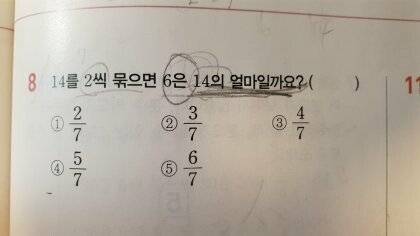 8 14를 2씩 묶으면 6은 14의 얼마일까요? ( ) 11
① 2/7 ② 3/7 ③ 4/7
④ 5/7 ⑤ 6/7